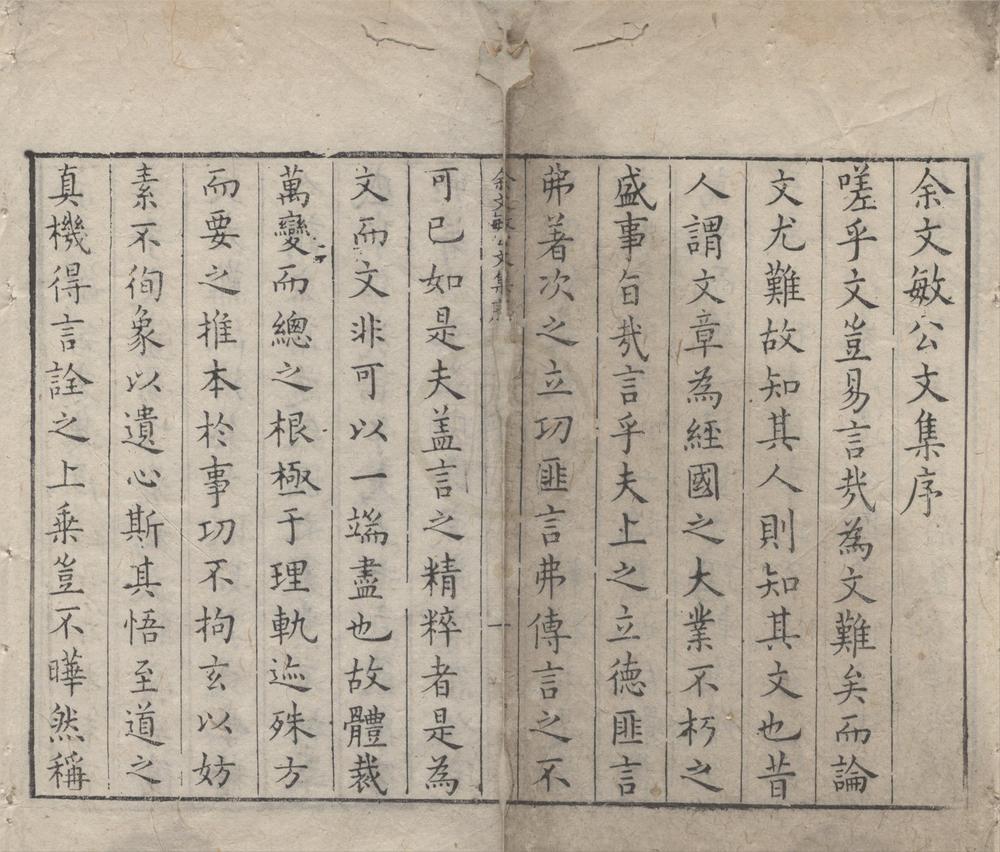 余文敏公文集序
嗟乎文豈易言哉為文難矣而論
文尤難故知其人則知其文也昔
人謂文章為經國之大業不朽之
盛事旨哉言乎夫上之立德匪言
弗著次之立功匪言弗傳言之不
余文敏公文集序 一
可已如是夫盖言之精粹者是為
文而文非可以一端盡也故體裁
萬變而總之根極于理軌迹殊方
而要之推本於事功不拘玄以妨
素不徇象以遺心斯其悟至道之
真機得言詮之上乘豈不曄然稱